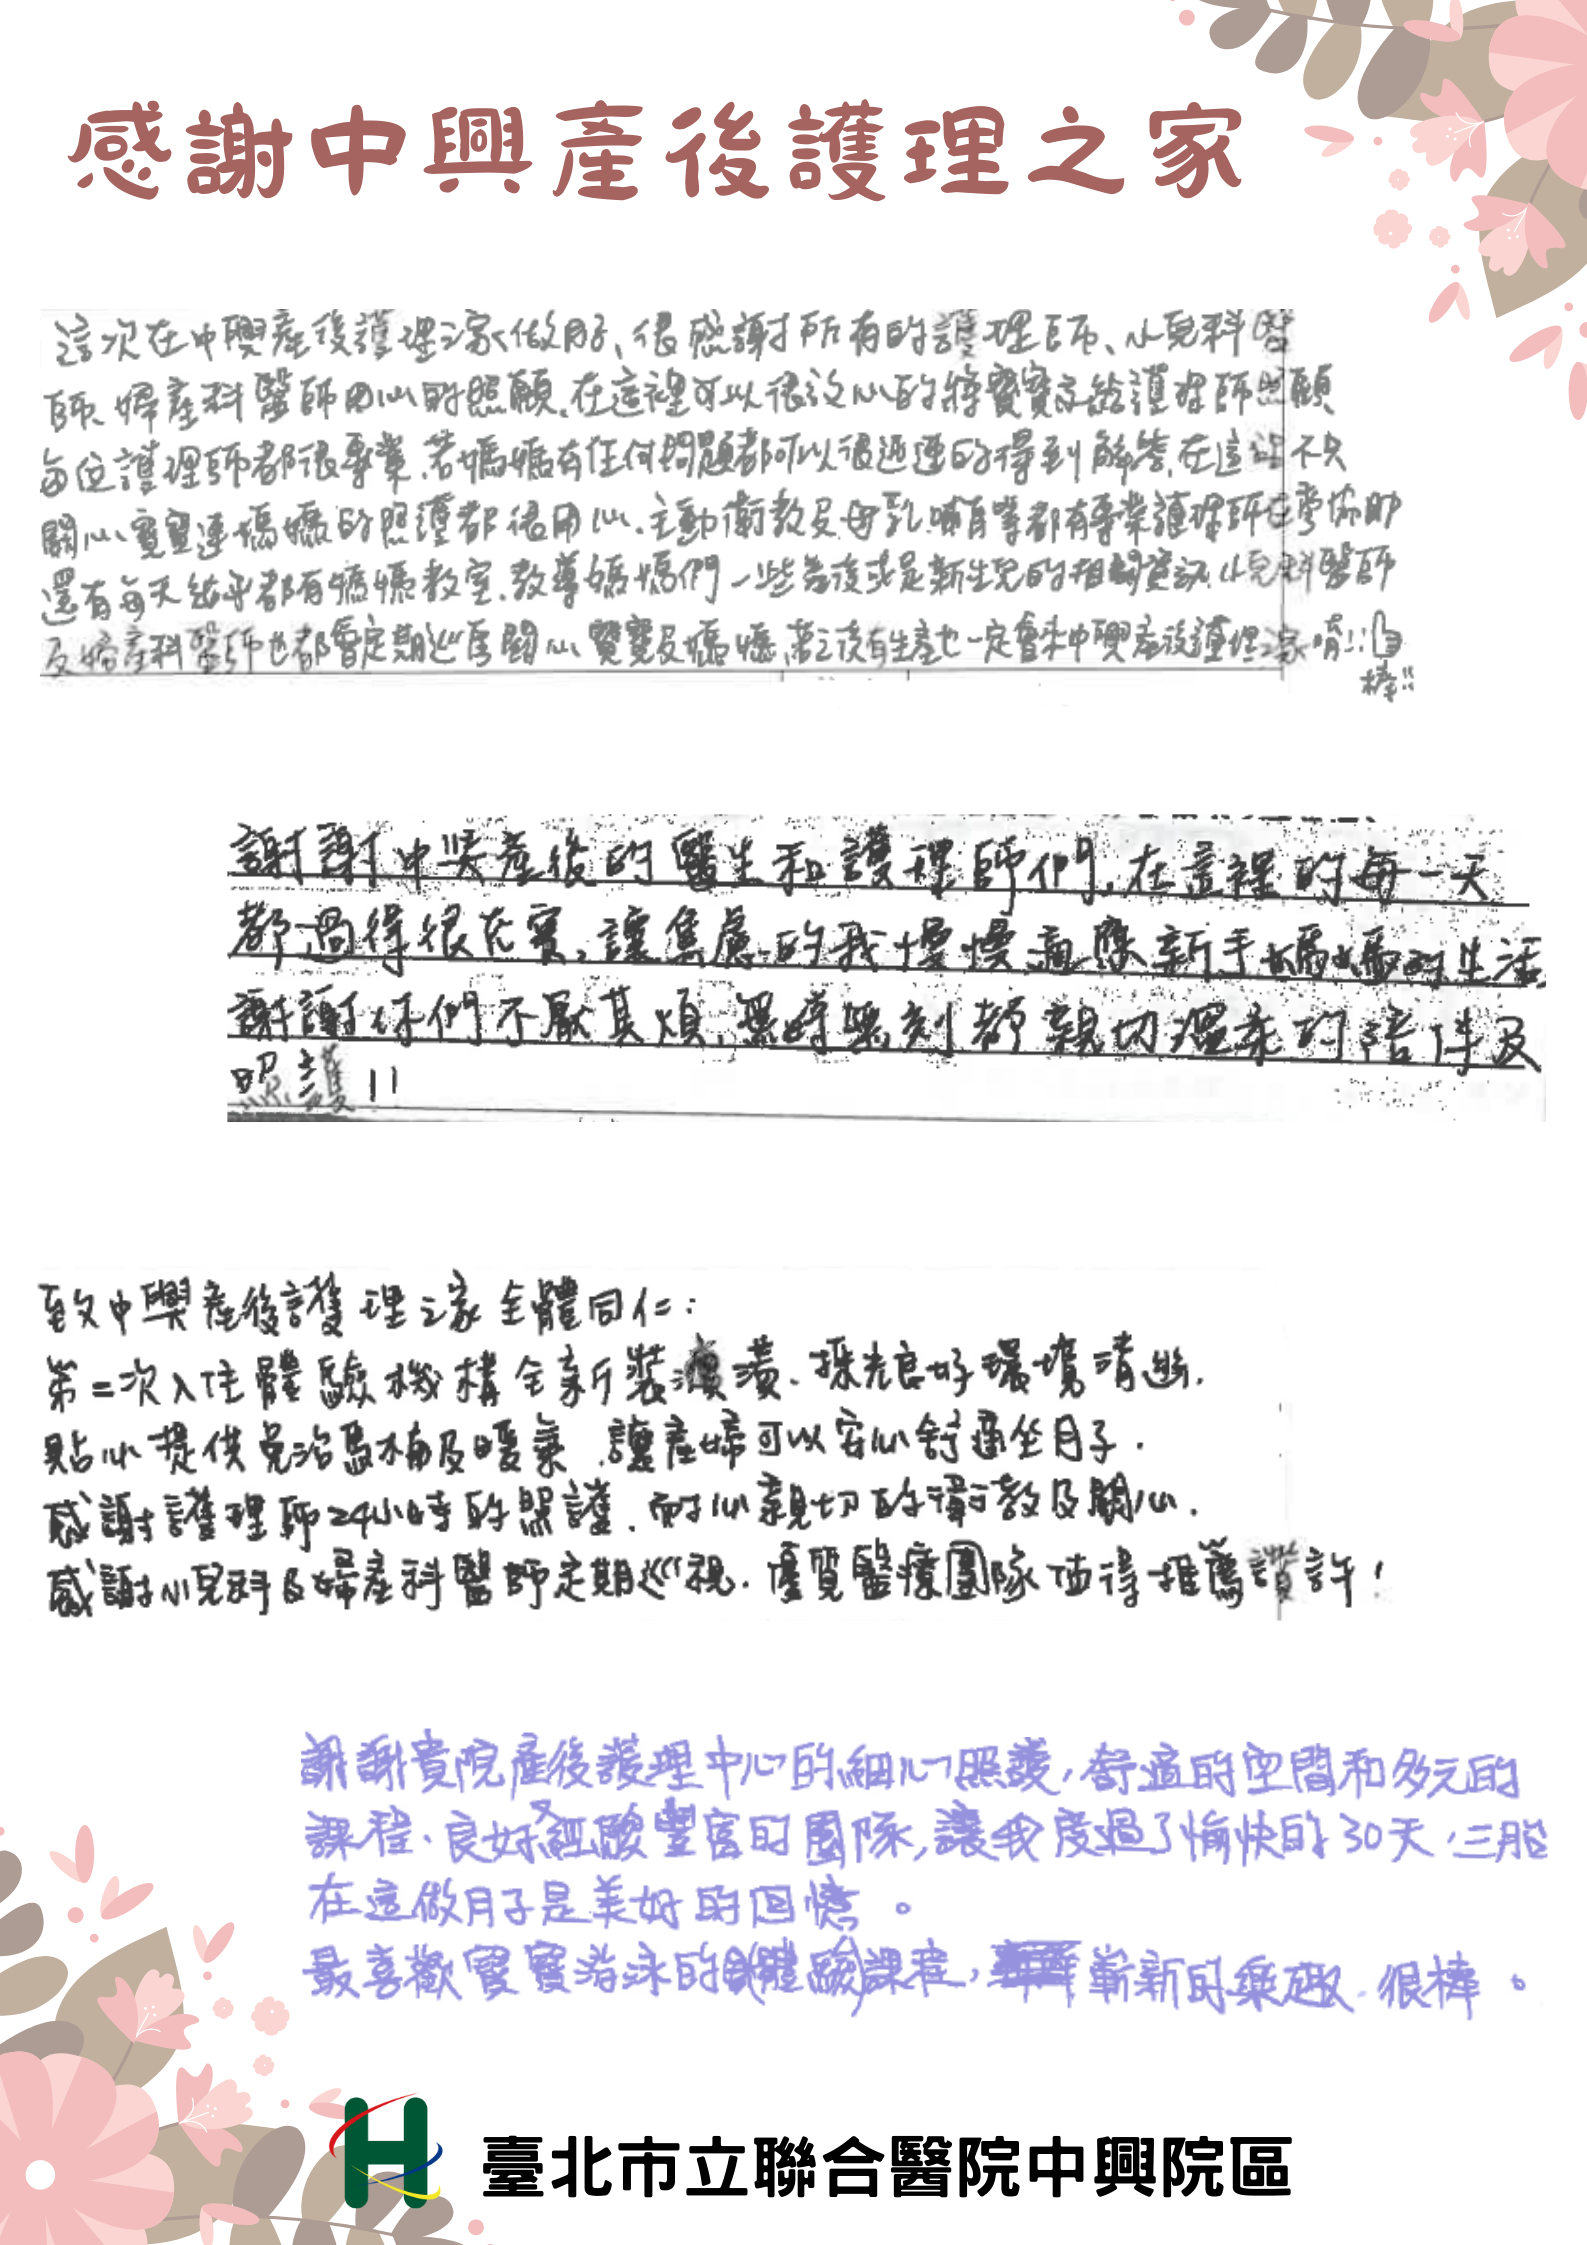 感謝中興產後護理之家
這次在中興產後護理之家做月子、很感謝所有的護理師、小兒科醫
師、婦產科醫師用心的照顧.在這裡可以很放心的將寶寶交給護理師照顧
每位護理師都很專業.若媽媽有任何問題都可以很迅速的得到解答.在這裡不只
關心寶寶連媽媽的照護都很用心.主動衛教及母乳哺育等都有專業護理師在旁協助
還有每天幾乎都有媽媽教室.教導媽媽們一些產後或是新生兒的相關資訊.小兒科醫師
及婦產科醫師也都會定期巡房關心寶寶及媽媽.若之後有生產也一定會來中興產後護理之家唷!!
棒!!
謝謝中興產後的醫生和護理師們,在這裡的每一天
都過得很充實,讓焦慮的我慢慢適應新手媽媽的生活
謝謝你們不厭其煩,無時無刻都親切溫柔的陪伴及
照護!!
致中興產後護理之家全體同仁:
第二次入住體驗機構全新裝潢、採光良好環境清幽.
貼心提供免治馬桶及暖氣.讓產婦可以安心舒適坐月子.
感謝護理師24小時的照護.耐心親切的衛教及關心.
感謝小兒科及婦產科醫師定期巡視.優質醫療團隊值得推薦讚許!
謝謝貴院產後護理中心的細心照護,舒適的空間和多元的
課程、良好又經驗豐富的團隊,讓我度過了愉快的30天,三胎
在這做月子是美好的回憶。
最喜歡寶寶游泳的(體驗)課程,嶄新的樂趣.很棒。
臺北市立聯合醫院中興院區